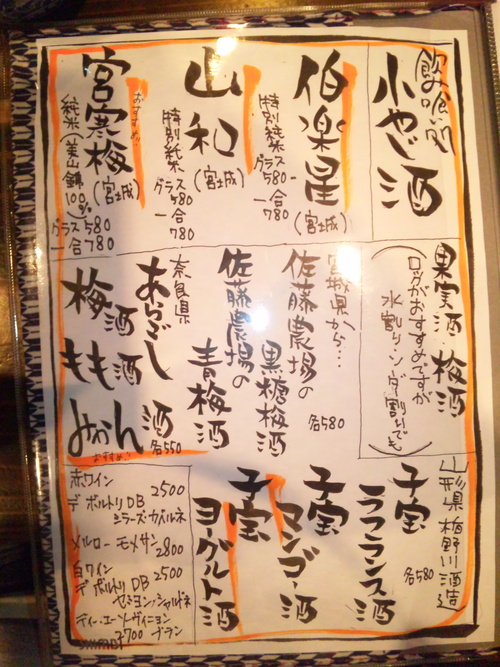 飲喰い処
小やじ酒
伯楽星
(宮城)
特別純米
グラス580
一合780
山和
(宮城)
特別純米
グラス580
一合780
宮寒梅
(宮城)
おすすめ!!
純米(美山錦100%)
グラス580
一合780
果実酒 梅酒
(ロックがおすすめですが
水割り・ソーダ割りでも)
宮城県から…
佐藤農場の
黒糖梅酒
佐藤農場の
青梅酒
各580
奈良県
あらごし
梅酒
もも酒
みかん酒
各550
おすすめ!!
山形県 楯野川酒造
子宝
ラフランス酒
子宝
マンゴー酒
子宝
ヨーグルト酒
各580
赤ワイン
2500
デ ボルトリ DB
シラーズ・カベルネ
メルロー モメサン
2800
白ワイン
2500
デ ボルトリ DB
セミヨン/シャルドネ
ティー・エー・ソーヴィニヨン
2700 ブラン